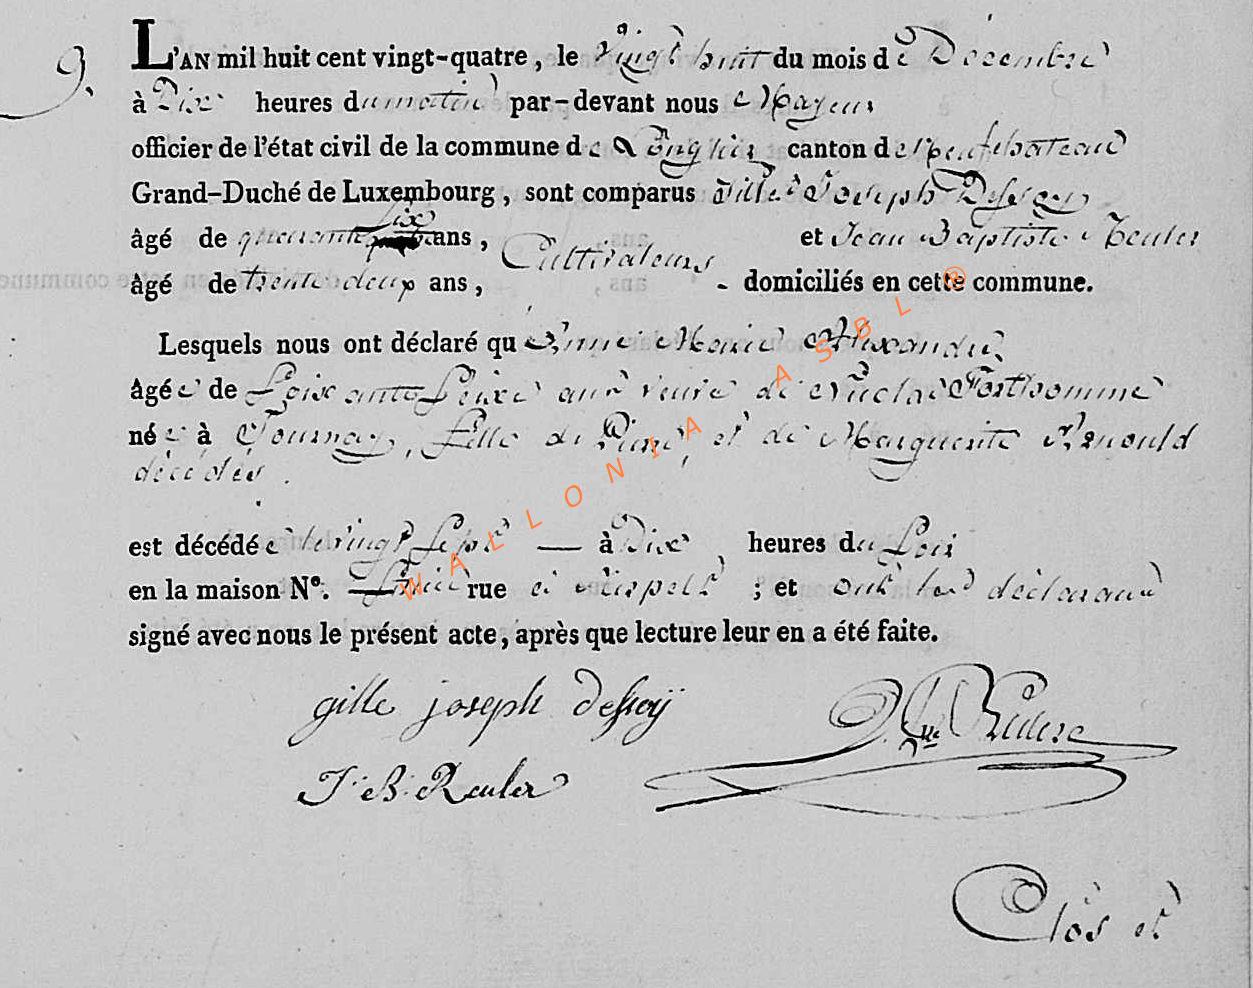 9.
L'AN mil huit cent vingt-quatre, le vingt huit du mois de Décembre
à Dix heures du matin par-devant nous Mayeur
officier de l'état civil de la commune de Longlier canton de Neufchateau
Grand-Duché de Luxembourg, sont comparus Gille Joseph Dessoy
six
âgé de quarante ans, Cultivateurs et Jean Baptiste Reuler
âgé de trente deux ans, - domiciliés en cette commune.
Lesquels nous ont déclaré qu Anne Marie Alexandre
âgée de Soixante Seize ans veuve de Nicolas Forthomme
née à Tournay, fille de Pierre, et de Marguerite Arnould
décédés.
est décédée le vingt Sept — à Dix heures du Soir
en la maison Nº. rue ; et ont les déclarans
signé avec nous le présent acte, après que lecture leur en a été faite.
gille joseph Dessoÿ
J. B. Reuler
Clos et
WALLONIA ASBL ®